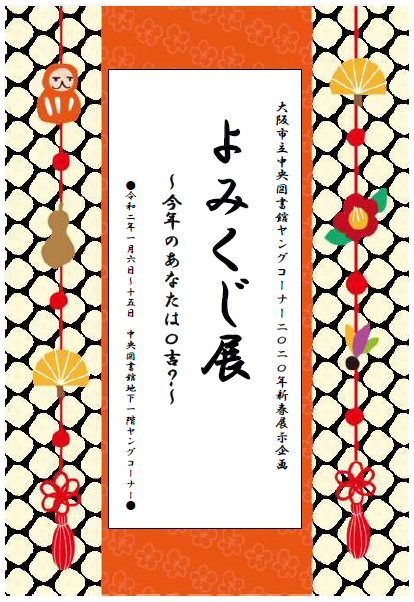 大阪市立中央図書館ヤングコーナー二〇二〇年新春展示企画
よみくじ展
～今年のあなたは〇吉？～
●令和二年一月六日～十五日　中央図書館地下一階ヤングコーナー●